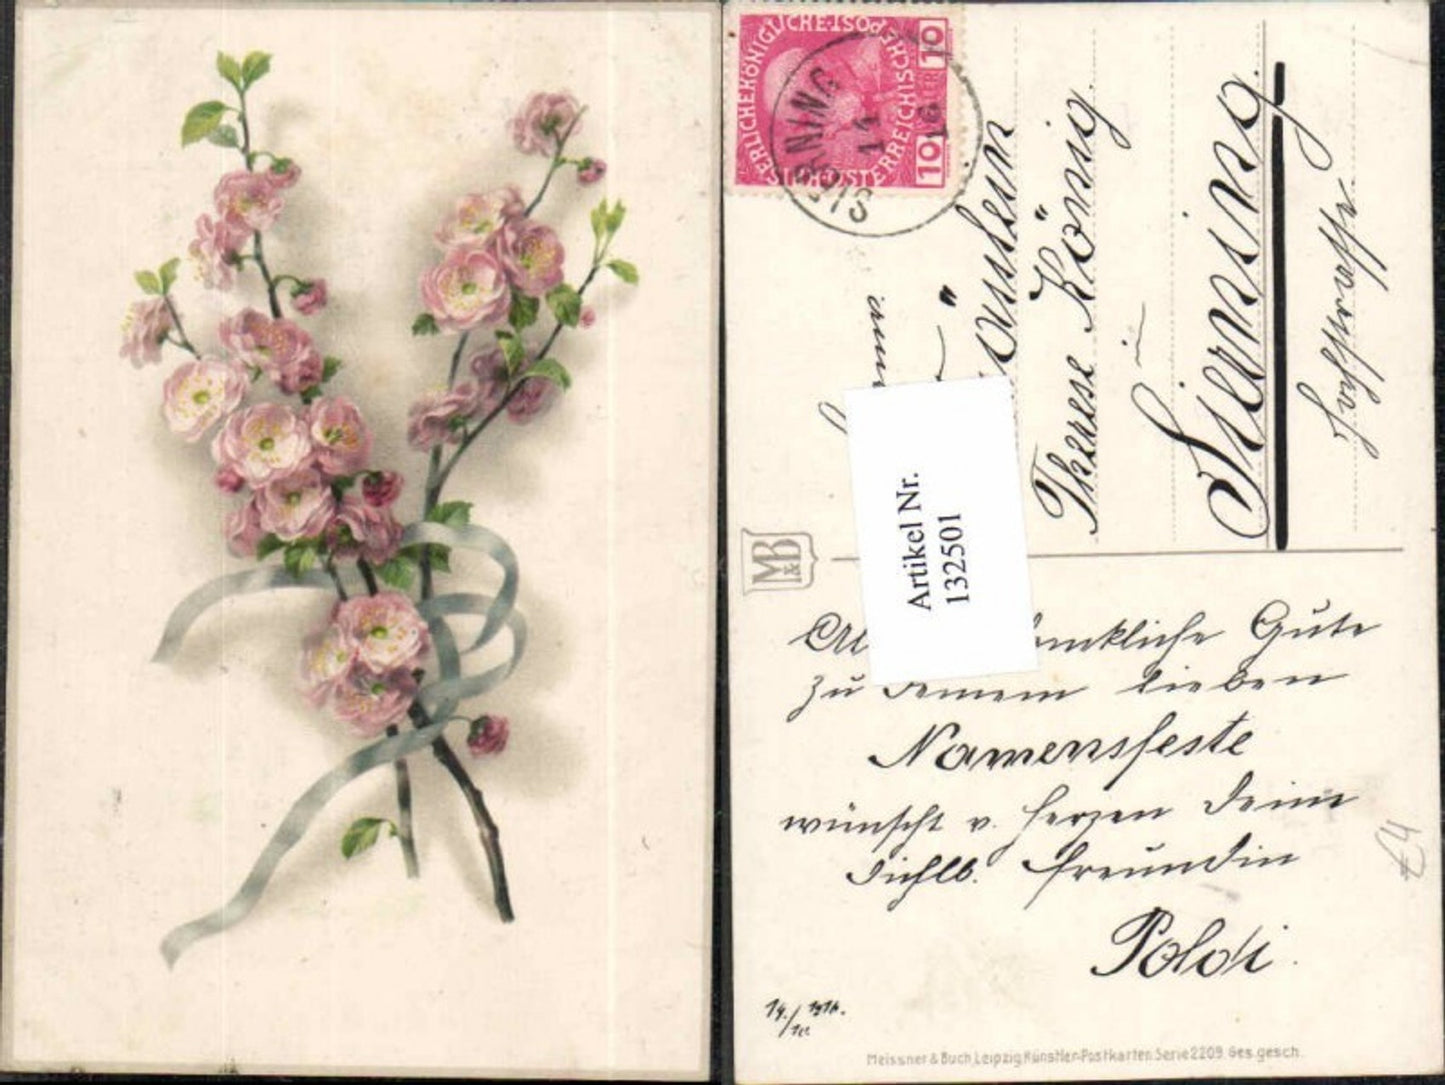 SIERNING
14
16
KAISERLICHEKÖNIGLICHE ÖSTERREICHISCHE POST
10
10
Fräulein
Therese König
in
Sierning.
Hochstrasse
M&B
Artikel Nr.
132501
erdenkliche Gute
zu Deinem lieben
Namensfeste
wünscht v. Herzen Deine
Dichlb. Freundin
Poldi.
14./10 1916.
€4
Meissner & Buch, Leipzig Künstler-Postkarten Serie 2209 Ges. gesch.